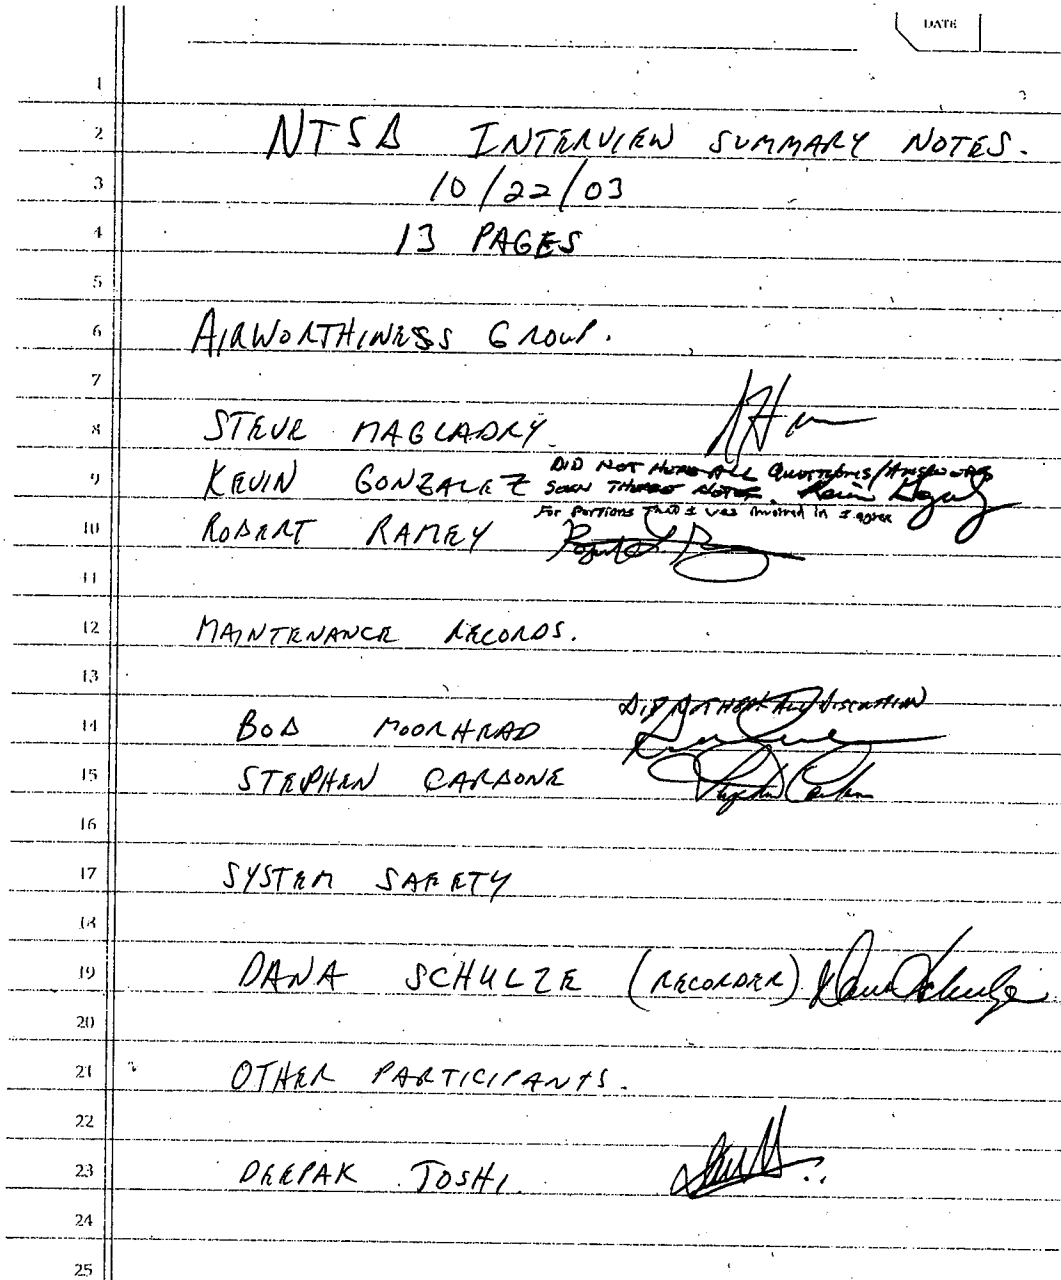 DATE
1
2 NTSB INTERVIEW SUMMARY NOTES.
3 10/22/03
4 13 PAGES
5
6 AIRWORTHINESS GROUP.
7
8 STEVE MAGLADRY
9 KEVIN GONZALEZ DID NOT HEAR ALL QUESTIONS/ANSWERS
THESE NOTES.
For portions that I was involved in I agree
10 ROBERT RAMEY
11
12 MAINTENANCE RECORDS.
13
DID NOT HEAR ALL DISCUSSION
14 BOB MOORHEAD
15 STEPHEN CARBONE
16
17 SYSTEM SAFETY
18
19 DANA SCHULZE (RECORDER) Dana Schulze
20
21 OTHER PARTICIPANTS.
22
23 DEEPAK JOSHI.
24
25